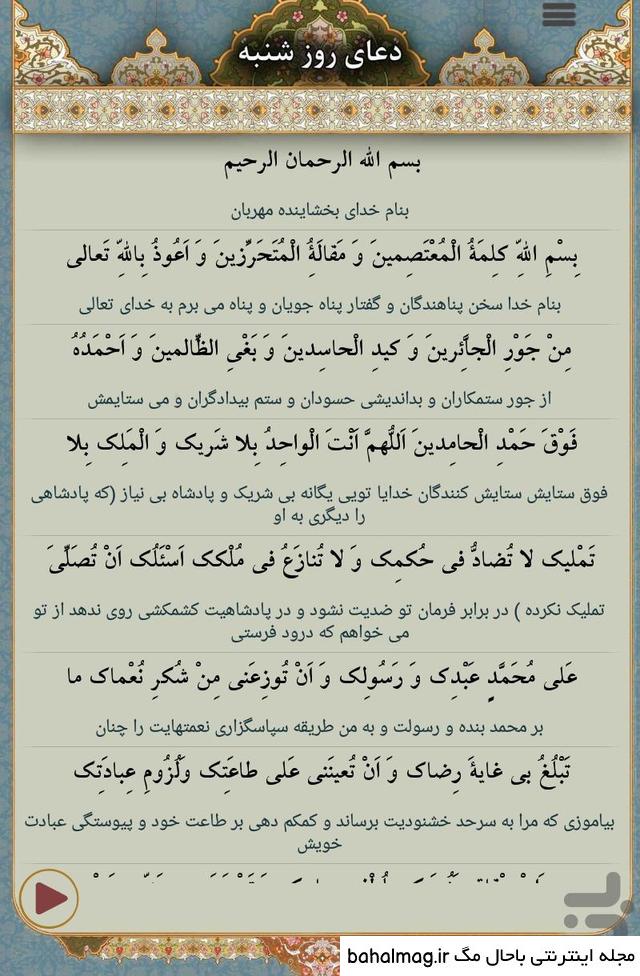 دعای روز شنبه
بسم الله الرحمان الرحیم
بنام خدای بخشاینده مهربان
بِسْمِ اللَّهِ کلِمَةُ الْمُعْتَصِمینَ وَ مَقالَةُ الْمُتَحَرِّزینَ وَ اَعُوذُ بِاللَّهِ تَعالی
بنام خدا سخن پناهندگان و گفتار پناه جویان و پناه می برم به خدای تعالی
مِنْ جَوْرِ الْجآئِرینَ وَ کیدِ الْحاسِدینَ وَ بَغْیِ الظّالِمینَ وَ اَحْمَدُهُ
از جور ستمکاران و بداندیشی حسودان و ستم بیدادگران و می ستایمش
فَوْقَ حَمْدِ الْحامِدینَ اَللّهُمَّ اَنْتَ الْواحِدُ بِلا شَریک وَ الْمَلِک بِلا
فوق ستایش ستایش کنندگان خدایا تویی یگانه بی شریک و پادشاه بی نیاز (که پادشاهی
را دیگری به او
تَمْلیک لا تُضادُّ فی حُکمِک وَ لا تُنازَعُ فی مُلْکک اَسْئَلُک اَنْ تُصَلِّیَ
تملیک نکرده ) در برابر فرمان تو ضدیت نشود و در پادشاهیت کشمکشی روی ندهد از تو
می خواهم که درود فرستی
عَلی مُحَمَّدٍ عَبْدِک وَ رَسُولِک وَ اَنْ تُوزِعَنی مِنْ شُکرِ نُعْماک ما
بر محمد بنده و رسولت و به من طریقه سپاسگزاری نعمتهایت را چنان
تَبْلُغُ بی غایةَ رِضاک وَ اَنْ تُعینَنی عَلی طاعَتِک وَلُزُومِ عِبادَتِک
بیاموزی که مرا به سرحد خشنودیت برساند و کمکم دهی بر طاعت خود و پیوستگی عبادت
خویش
مجله اینترنتی باحال مگ bahalmag.ir